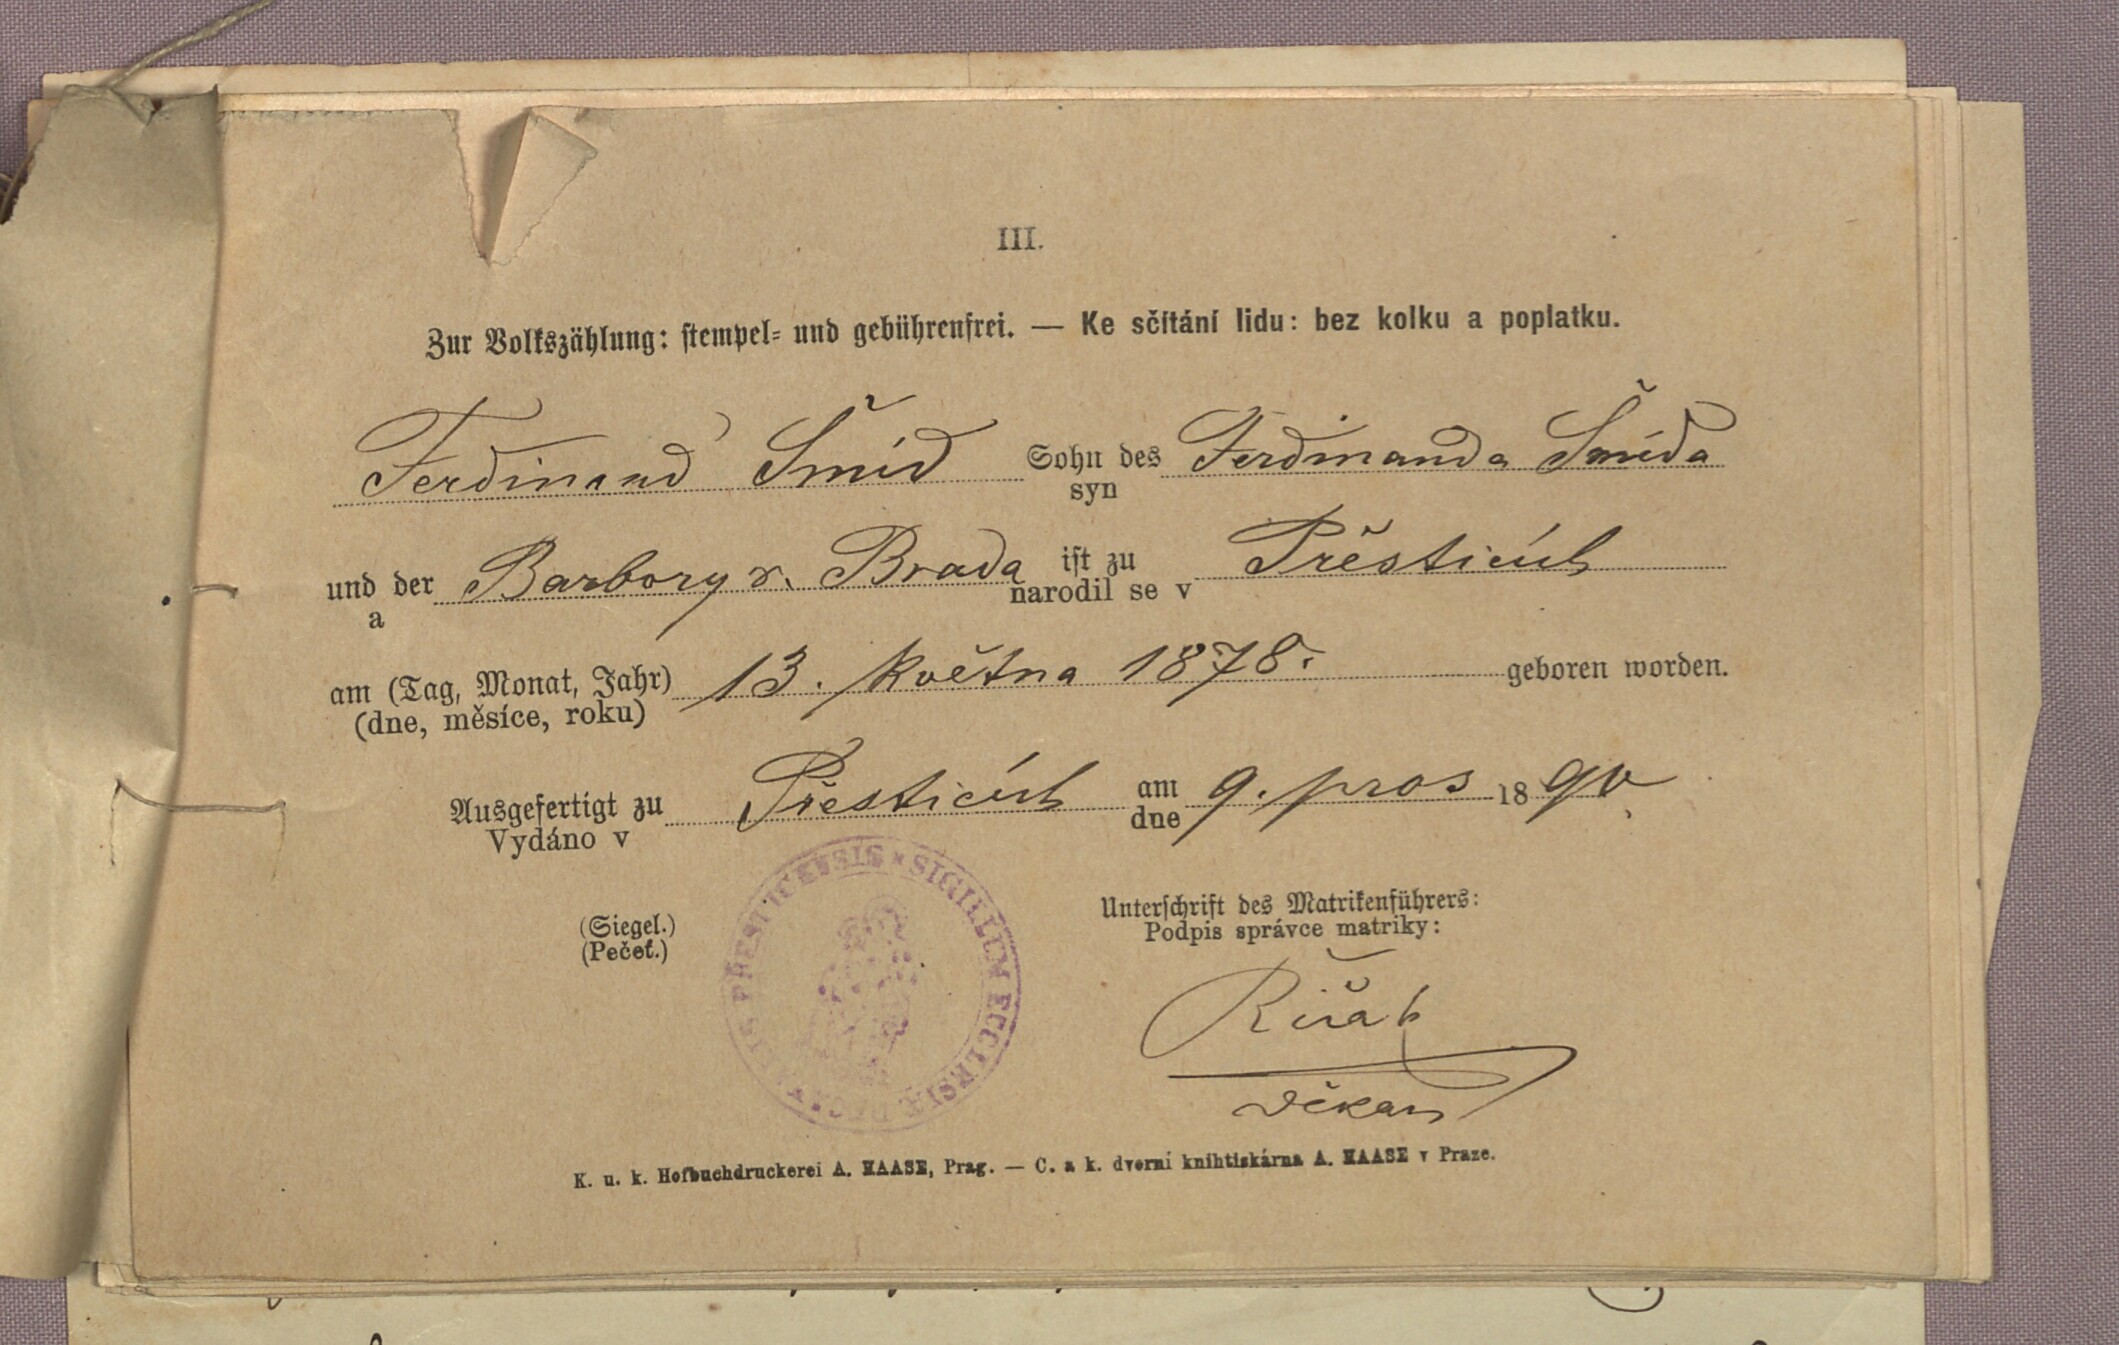 III.
Zur Volkszählung: stempel- und gebührenfrei. — Ke sčítání lidu: bez kolku a poplatku.
Ferdinand Šmíd Sohn des Ferdinanda Šmída
syn
und der Barbory r. Brada ist zu Přešticích
a narodil se v
am (Tag, Monat, Jahr) 13. května 1878. geboren worden.
(dne, měsíce, roku)
Ausgefertigt zu Přešticích am 9. pros 1890
Vydáno v dne
SIGILLUM ECCLESIÆ PŘESTICENSIS
(Siegel.)
(Pečeť.)
Unterschrift des Matrikenführers:
Podpis správce matriky:
děkan
K. u. k. Hofbuchdruckerei A. HAASE, Prag. — C. a k. dvorní knihtiskárna A. HAASE v Praze.